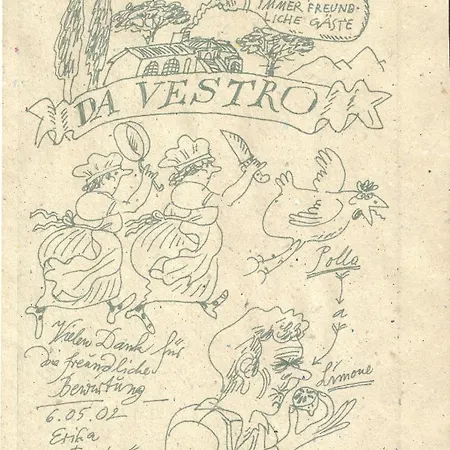 IMMER FREUND-
LICHE GÄSTE
DA VESTRO
Pollo
a
Limone
Vielen Dank für
die freundliche
Bewirtung
6.05.02
Erika